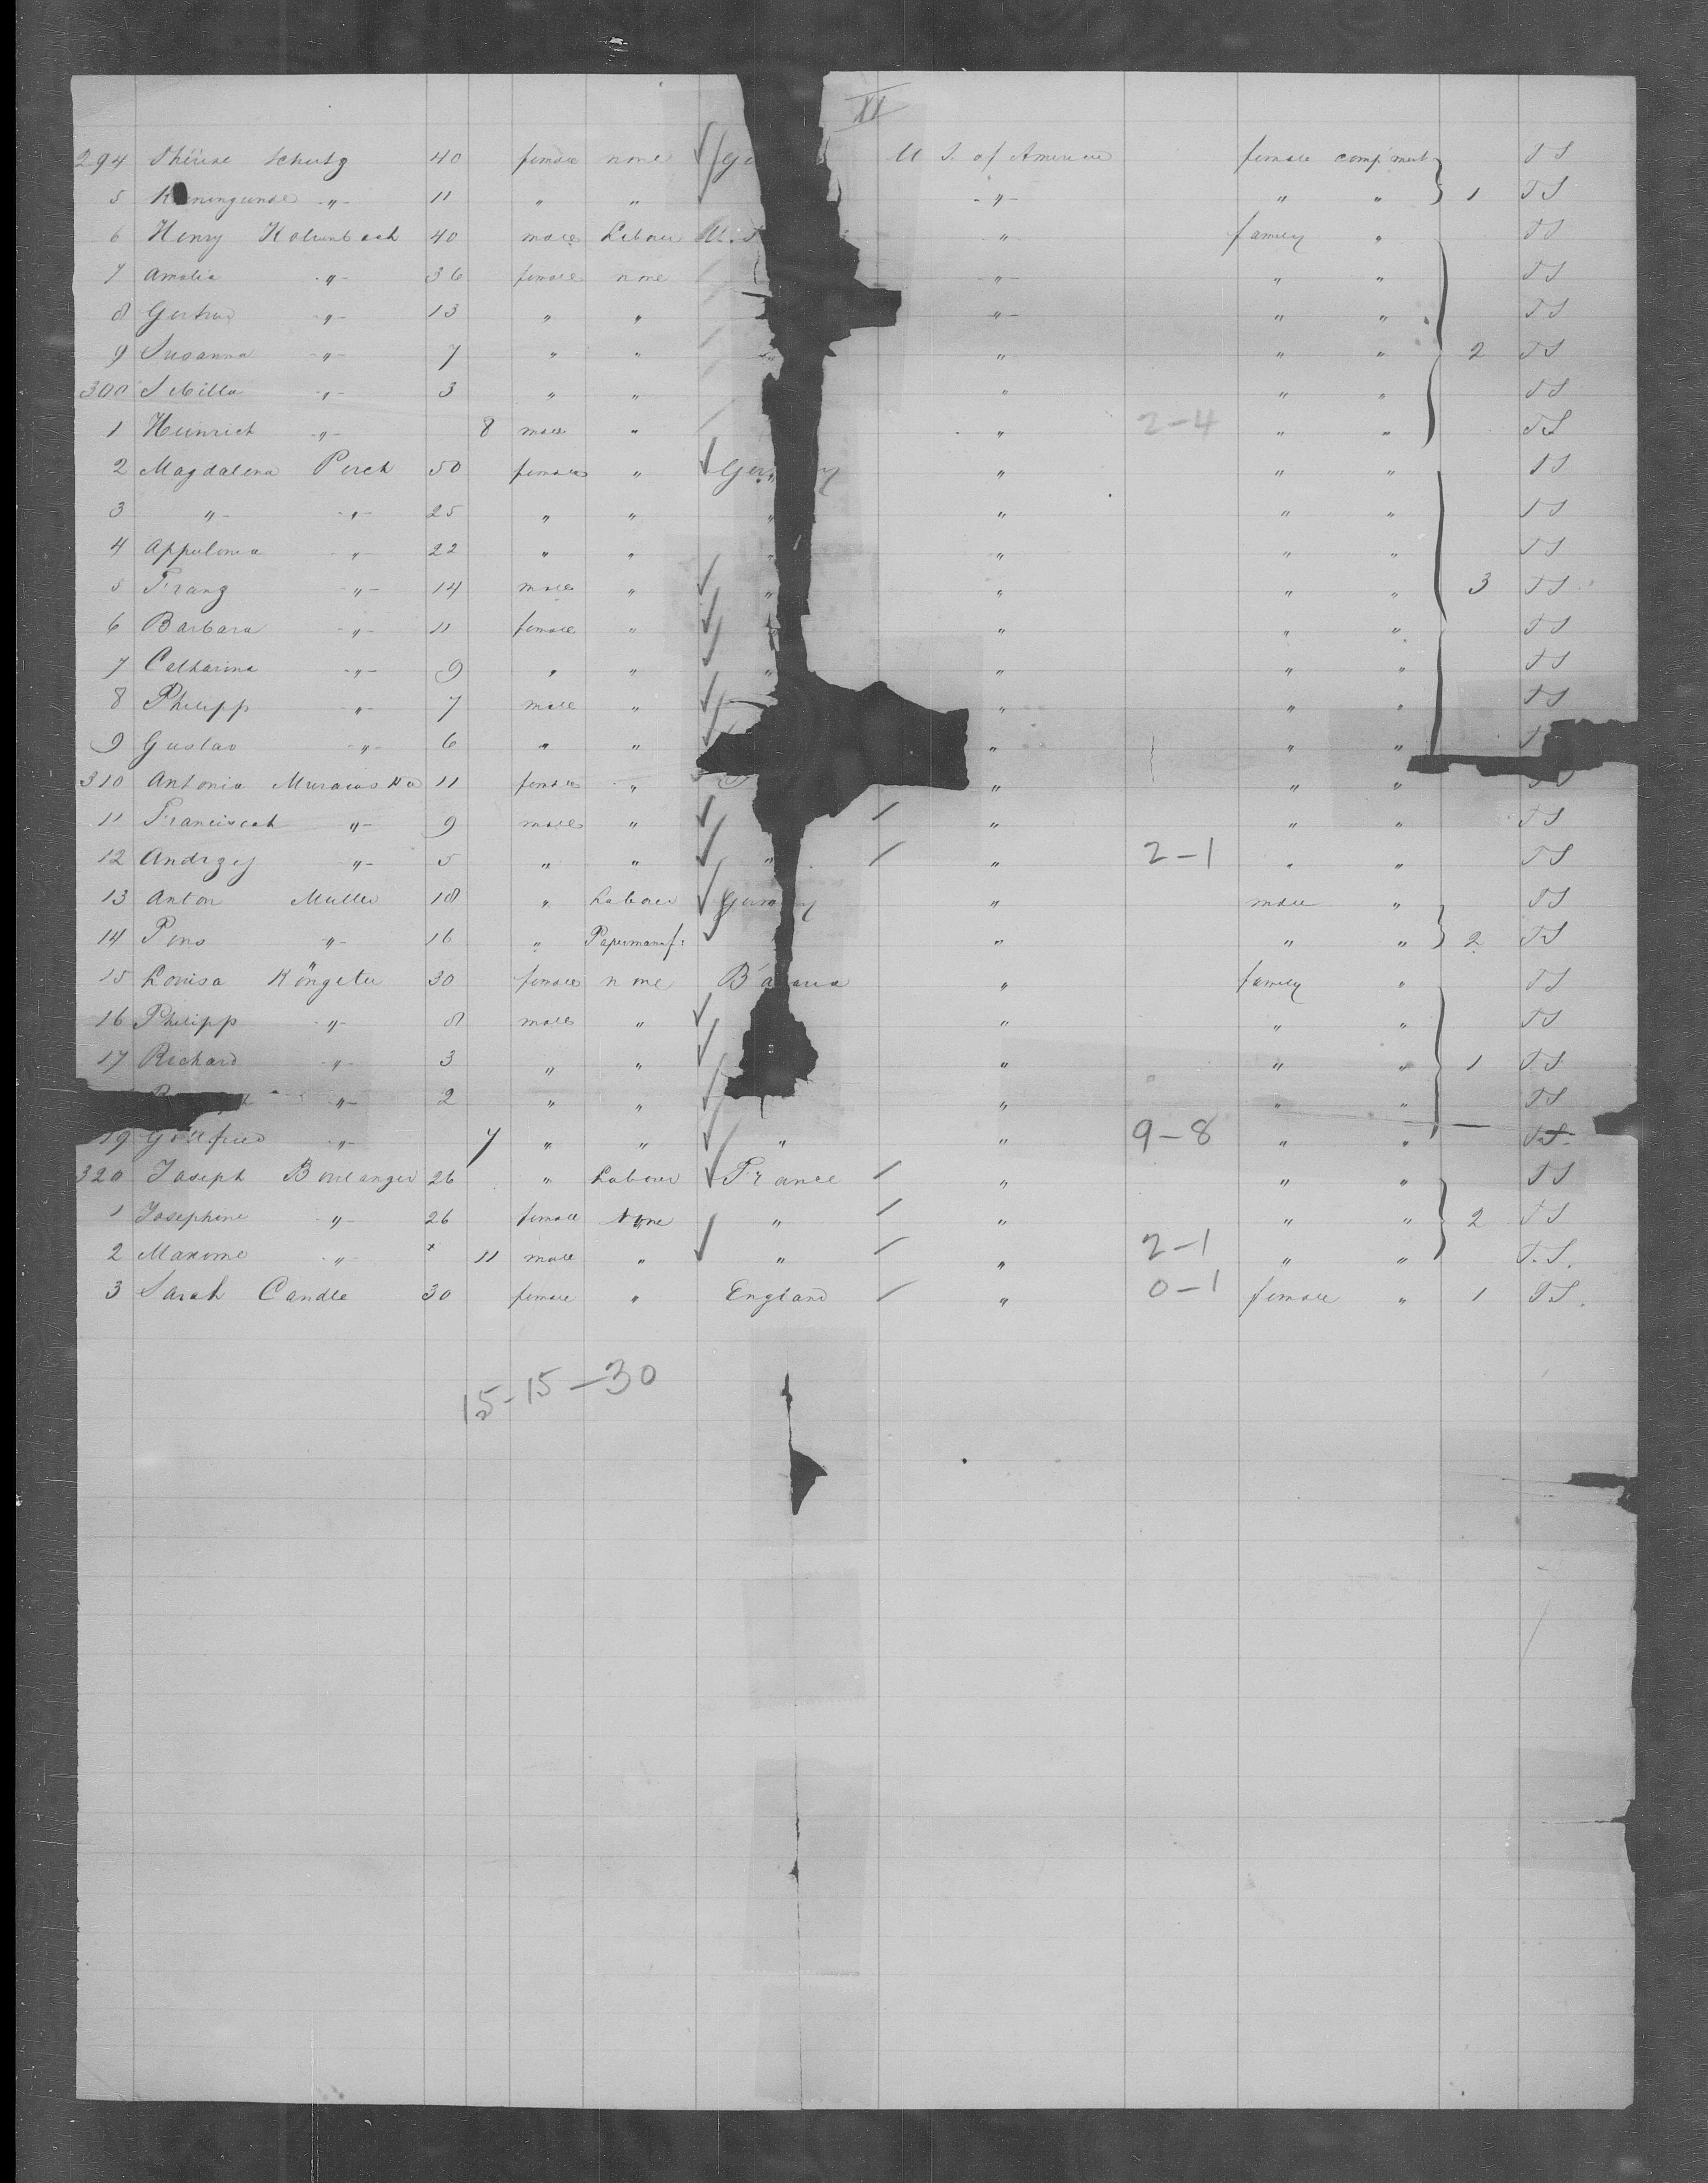 XI
294 Thérèse Schutz 40 female none U S. of America female comp'ment TS
5 K ningunde -"- 11 " " -"- " " 1 TS
6 Henry Kolumbach 40 male Labourer U.S " family " TS
7 Amalia -"- 36 female none -"- " " TS
8 Gertrud -"- 13 " " -"- " " TS
9 Susanna -"- 7 " " " " " 2 TS
300 Sibilla -"- 3 " " " " " TS
1 Heinrich -"- 8 male " " 2-4 " " TS
2 Magdalena Perch 50 female " Ger y " " " TS
3 -"- -"- 25 " " " " " " TS
4 Appulonia -"- 22 " " " " " " TS
5 Franz -"- 14 male " " " " " 3 TS
6 Barbara -"- 11 female " " " " TS
7 Catharina -"- 9 " " " " " " TS
8 Philipp -"- 7 male " " " " TS
9 Gustav -"- 6 " " " " " T
310 Antonia 11 female " " " " TS
11 Franciscek "- 9 male " " " " TS
12 Andrzej "- 5 " " " " 2-1 " " TS
13 Anton Muller 18 " Labourer Germ y " male " TS
14 Pons "- 16 " Papermanuf: " " " 2 TS
15 Louisa Köngeter 30 female none Ba aria " family " TS
16 Philipp -"- 8 male " " " " TS
17 Richard -"- 3 " " " " " 1 TS
-"- 2 " " " " " TS
19 Gottfried -"- 7 " " " " 9-8 " " T.S.
320 Joseph Boulanger 26 " Labourer France " " " TS
1 Josephine "- 26 female None " " " " 2 TS
2 Maxime -"- 11 male " " " 2-1 " " T.S.
3 Sarah Candle 30 female " England " 0-1 female " 1 TS.
15-15-30